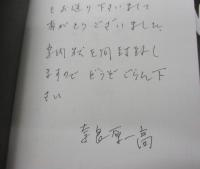 をお送り下さいまして
有がとうございました。
案内状を同封致し
ますので どうぞ ごらん下
さい
奈良原一高